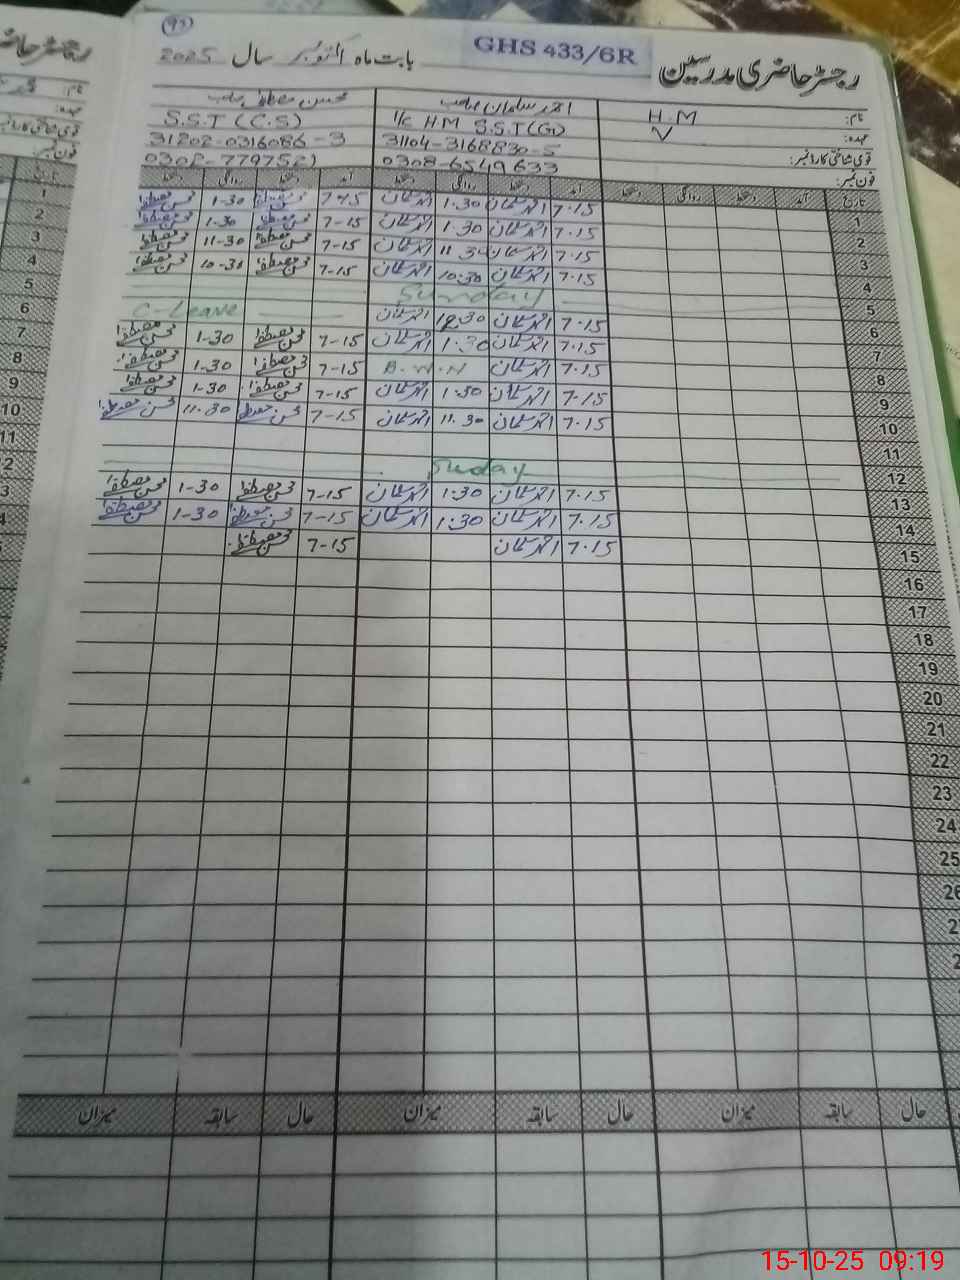 93
رجسٹر حاضری مدرسین GHS 433/6R بابت ماہ اکتوبر سال 2025
نام: H.M احمد سلمان صاحب محسن مصطفیٰ صاحب
عہدہ: V I/c HM S.S.T(G) S.S.T (C.S)
قومی شناختی کارڈ نمبر: 31104-3168830-5 31202-0316086-3
فون نمبر: 0308-6549633 0302-7797521
تاریخ آمد دستخط روانگی دستخط آمد دستخط روانگی دستخط آمد دستخط روانگی دستخط
1 7.15 احمد سلمان 1.30 احمد سلمان محسن مصطفیٰ 1-30 محسن مصطفیٰ
2 7.15 احمد سلمان 1.30 احمد سلمان 7-15 محسن مصطفیٰ 1-30 محسن مصطفیٰ
3 7.15 احمد سلمان 11.30 احمد سلمان 7-15 محسن مصطفیٰ 11-30 محسن مصطفیٰ
4 7.15 احمد سلمان 10:30 احمد سلمان 7-15 محسن مصطفیٰ 10-30 محسن مصطفیٰ
5 Sunday
6 7.15 احمد سلمان 12.30 احمد سلمان C-Leave
7 7.15 احمد سلمان 1:30 احمد سلمان 7-15 محسن مصطفیٰ 1-30 محسن مصطفیٰ
8 7.15 احمد سلمان B.W.N 7-15 محسن مصطفیٰ 1-30 محسن مصطفیٰ
9 7.15 احمد سلمان 1:30 احمد سلمان 7-15 محسن مصطفیٰ 1-30 محسن مصطفیٰ
10 7.15 احمد سلمان 11.30 احمد سلمان 7-15 محسن مصطفیٰ 11.30 محسن مصطفیٰ
11
12 Suday
13 7.15 احمد سلمان 1:30 احمد سلمان 7-15 محسن مصطفیٰ 1-30 محسن مصطفیٰ
14 7.15 احمد سلمان 1:30 احمد سلمان 7-15 محسن مصطفیٰ 1-30 محسن مصطفیٰ
15 7.15 احمد سلمان 7-15 محسن مصطفیٰ
16
17
18
19
20
21
22
23
24
25
26
حال سابقہ میزان حال سابقہ میزان حال سابقہ میزان
15-10-25 09:19